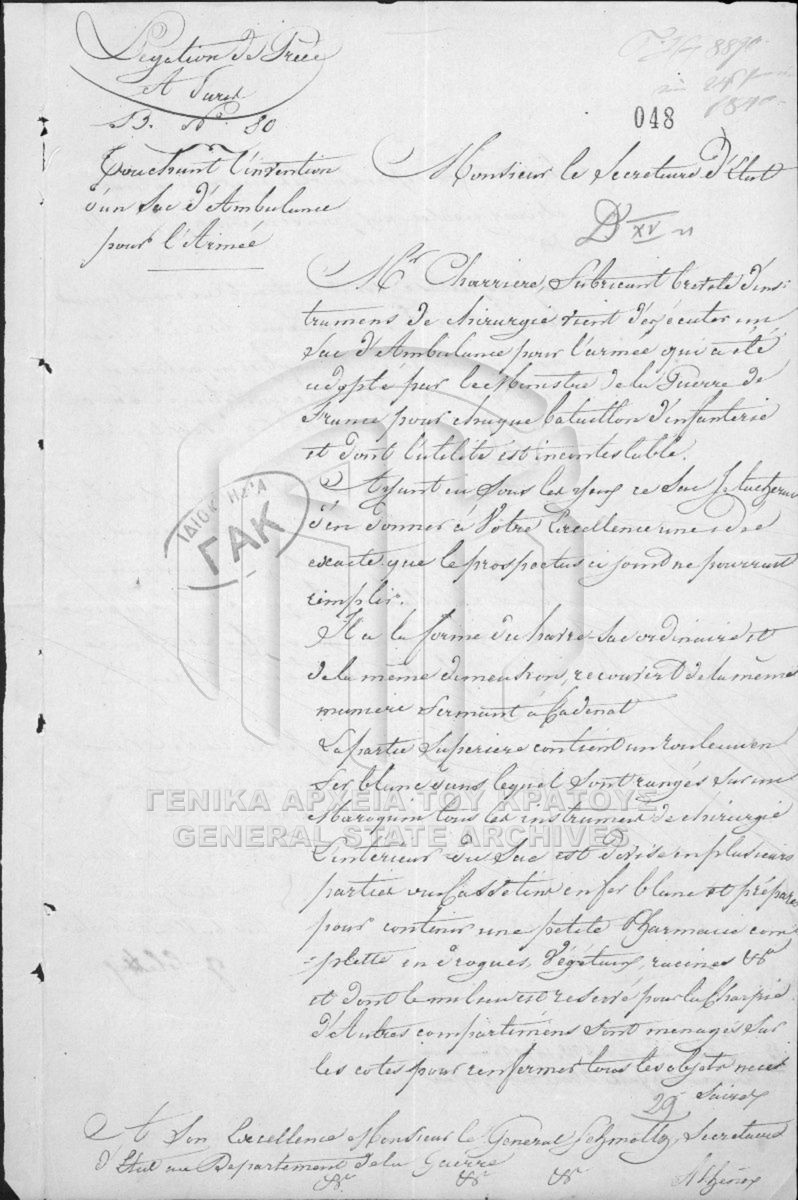 Légation de Grèce
A Paris
S3. No. 80
Touchant l'invention
d'un Sac d'Ambulance
pour l'Armée
048
Monsieur le Secretaire d'Etat
D XV
Mr. Charriere, fabricant breveté d'ins-
trumens de chirurgie vient d'exécuter un
Sac d'Ambulance pour l'armée qui a été
adopté par le Ministre de la Guerre de
France pour chaque bataillon d'infanterie
et dont l'utilité est incontestable.
Ayant eu sous les yeux ce Sac je tacherai
d'en donner à Votre Excellence une idée
exacte que le prospectus ci joint ne pourrait
remplir.
Il a la forme du havre-sac ordinaire et
de la même dimension, recouvert de la même
maniere fermant à Cadenat
La partie Superiere contient un rouleau en
fer blanc dans lequel sont rangés sur un
Maroquin tous les instrument de chirurgie
L'interieur du Sac est divisé en plusieurs
parties ou Cassetins en fer blanc et préparé
pour contenir une petite Pharmacie com
-plette en drogues, Végétaux, racines &a
et dont le milieu est reservé pour la Charpie.
d'Autres compartimens sont menagés sur
les cotes pour renfermer tous les objets neces
saires
29
A Son Excellence Monsieur le General Schmaltz, Secretaire
d'Etat au Departement de la Guerre
&a &a &a Athènes
ΙΔΙΟΚΤΗΣΙΑ
ΓΑΚ
ΓΕΝΙΚΑ ΑΡΧΕΙΑ ΤΟΥ ΚΡΑΤΟΥΣ
GENERAL STATE ARCHIVES